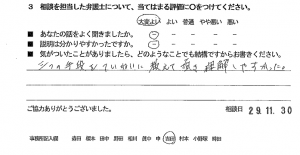 3 相談を担当した弁護士について、当てはまる評価に〇をつけてください。
大変よい よい 普通 やや悪い 悪い
■ あなたの話をよく聞きましたか。
■ 説明は分かりやすかったですか。
■ 気がついたことがありましたら、どのようなことでも結構ですからお書きください。
三つの手段をていねいに教えて頂き理解しやすかった。
ご協力ありがとうございました。
相談日 29.11.30
事務所記入欄 森田 榎本 田中 野田 相川 田中 申 吉田 村本 小野塚 時田